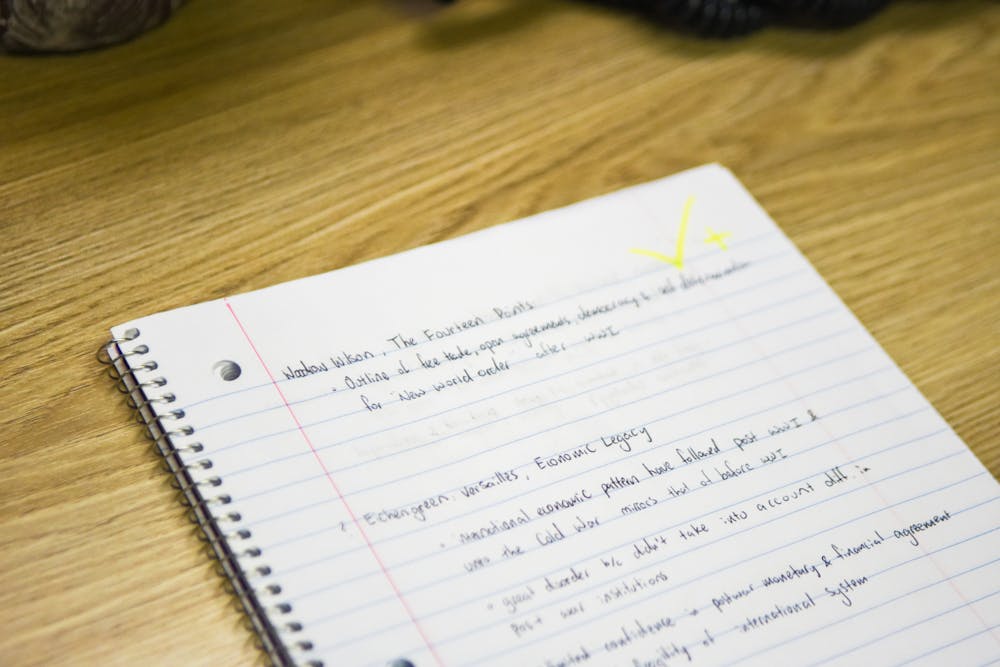 Woodrow Wilson, The Fourteen Points
• Outline of free trade, open agreements, democracy & self determination
for "New world order" after WWI
Eichengreen: Versailles, Economic Legacy
• international economic pattern have followed post WWI &
the Cold War mirrors that of before WWI
• great disorder b/c didn't take into account diff. in
post war institutions
confidence in postwar monetary & financial agreement
of international system